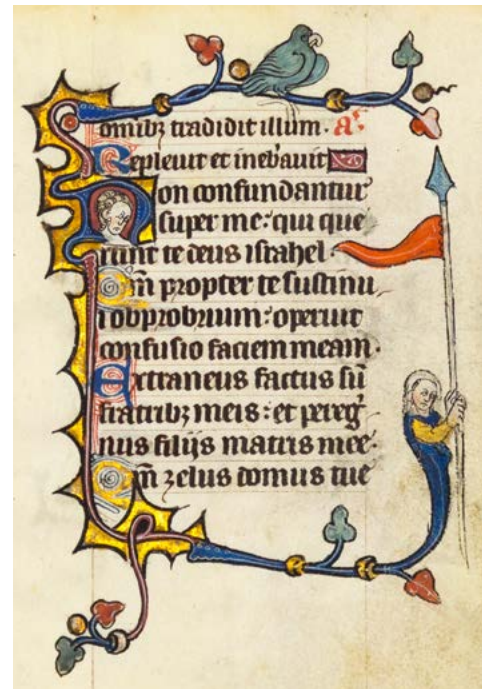 omībꝫ tradidit illum. a͛
Repleuit et inebᷓauit
Non confundantur
super me: qui que
runt te deus israhel.
Qm̄ propter te sustinu
i obprobrium: operuit
confusio faciem meam.
Extraneus factus sū
fratribꝫ meis: et pereg͛
nus filijs matris mee:
Qm̄ zelus domus tue